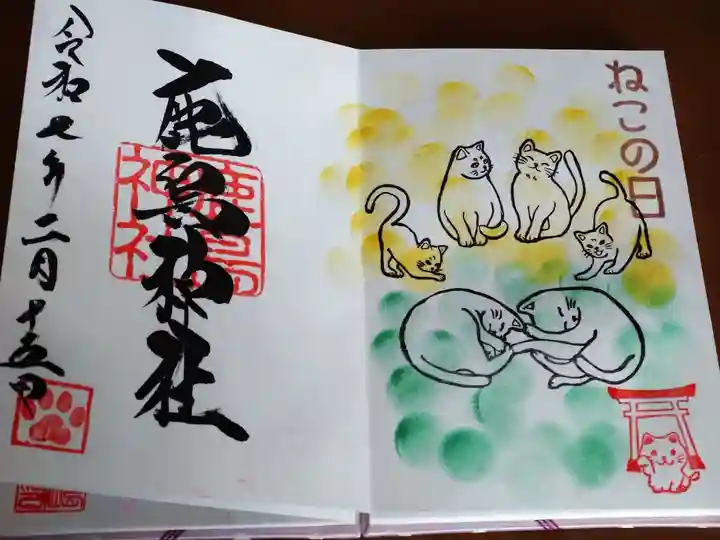 鹿島神社
令和七年二月十五日
ねこの日